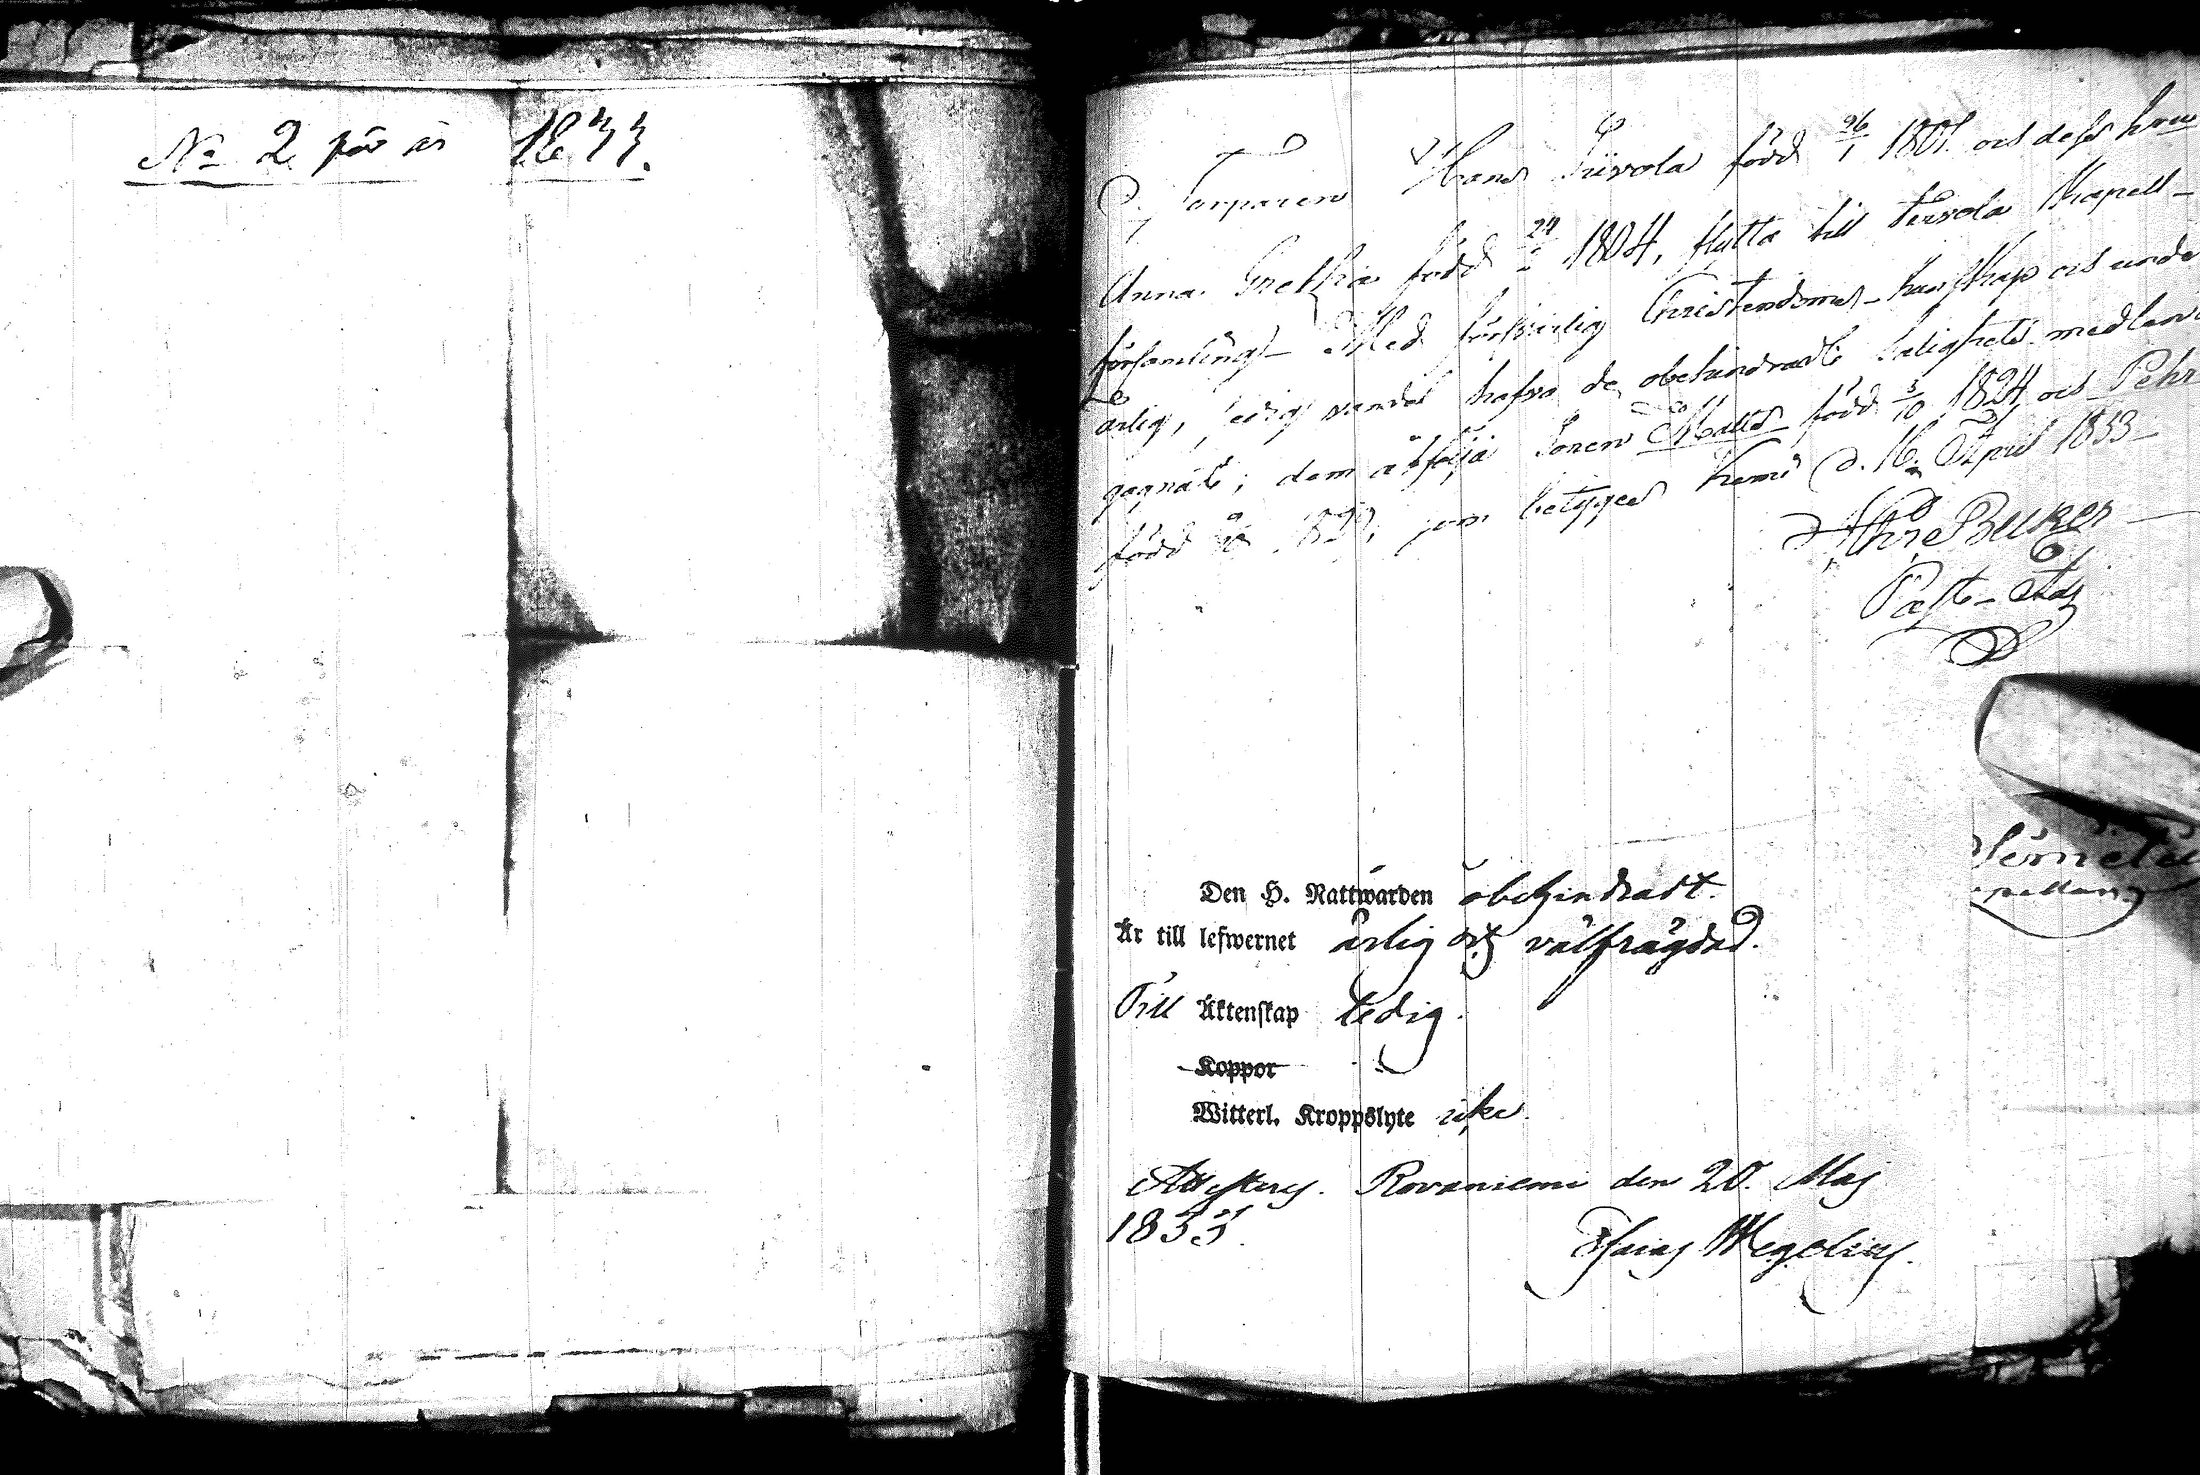 No 2 för år 1833.
Torparen Hans Tiivola född 26/1 1801. och dess hustru
Anna Gretha född 24 1804, flytta till Tervola Kapell-
församling. Med försvarlig Christendoms-kunskap och under
ärlig, ledig vandel hafva de obehindradt salighets medlen
; dem åtfölja Sonen Matts född 3/10 1824 och Pehr
född som betygas Kemi d. 16. April 1833
Past. Adj
Den H. Nattwarden obehindradt.
Är till lefwernet ärlig och välfrägdad.
Till Äktenskap ledig.
Koppor
Witterl. Kroppslyte icke.
Attesteras. Rovaniemi den 20. Maj
1833.
Esaias Wegelius.